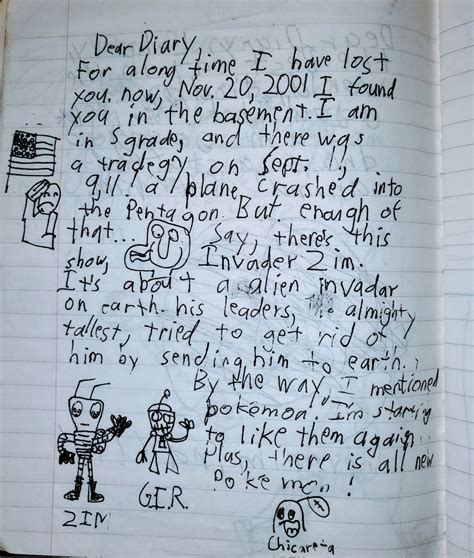 Dear Diary,
For along time I have lost
you. now, Nov. 20, 2001 I found
you in the basement. I am
in 5 grade, and there was
a tradegy on Sept. 11,
9,11! a plane crashed into
the Pentagon. But enough of
that... Say, there's this
show, Invader Zim.
It's about a alien invadar
on earth. his leaders, the almighty
tallest, tried to get rid of
him by sending him to earth.
By the way, I mentioned
pokemoa! I'm starting
to like them again.
Plus, there is all new
Pokemen!
ZIM
G.I.R.
Chicareta